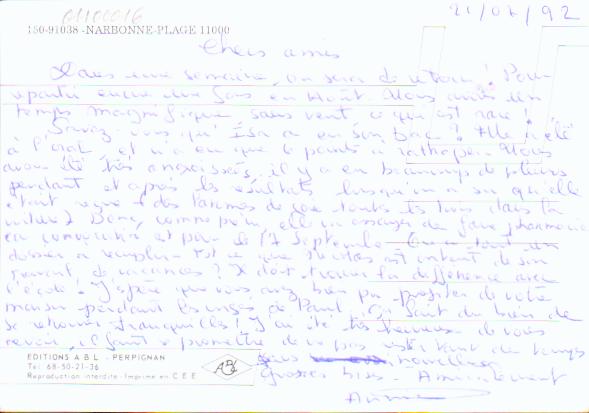 01100016
21/07/92
150-91038 - NARBONNE-PLAGE 11000
Chers amis
Dans une semaine, on sera de retour! Pour
repartir encore une fois en Août. Nous avons un
temps magnifique sans vent ce qui est rare!
Savez-vous qu'Isa a eu son bac? Elle a été
à l'oral et n'a eu que 6 points à rattraper. Nous
avons été très angoissés, il y a eu beaucoup de pleurs
pendant et après les résultats lorsqu'on a su qu'elle
était reçue (des larmes de joie toutes les deux dans la
voiture) Donc, comme prévu, elle va essayer de faire pharmacie
la rentrée est pour le 17 Septembre. On a tout un
dossier à remplir. Est ce que Nicolas est content de son
de vacances? Il doit trouver la différence avec
l'école! J'espère que vous avez bien pu profiter de votre
maison pendant les congés de Paul. Ça fait du bien de
se retrouver tranquilles! J'ai été très heureuse de vous
revoir, il faut se promettre de ne pas rester tant de temps
sans nouvelles
Grosses bises - Amicalement
EDITIONS A B L - PERPIGNAN
Tél: 68-50-21-36
Reproduction interdite - Imprimé en C E E
ABL